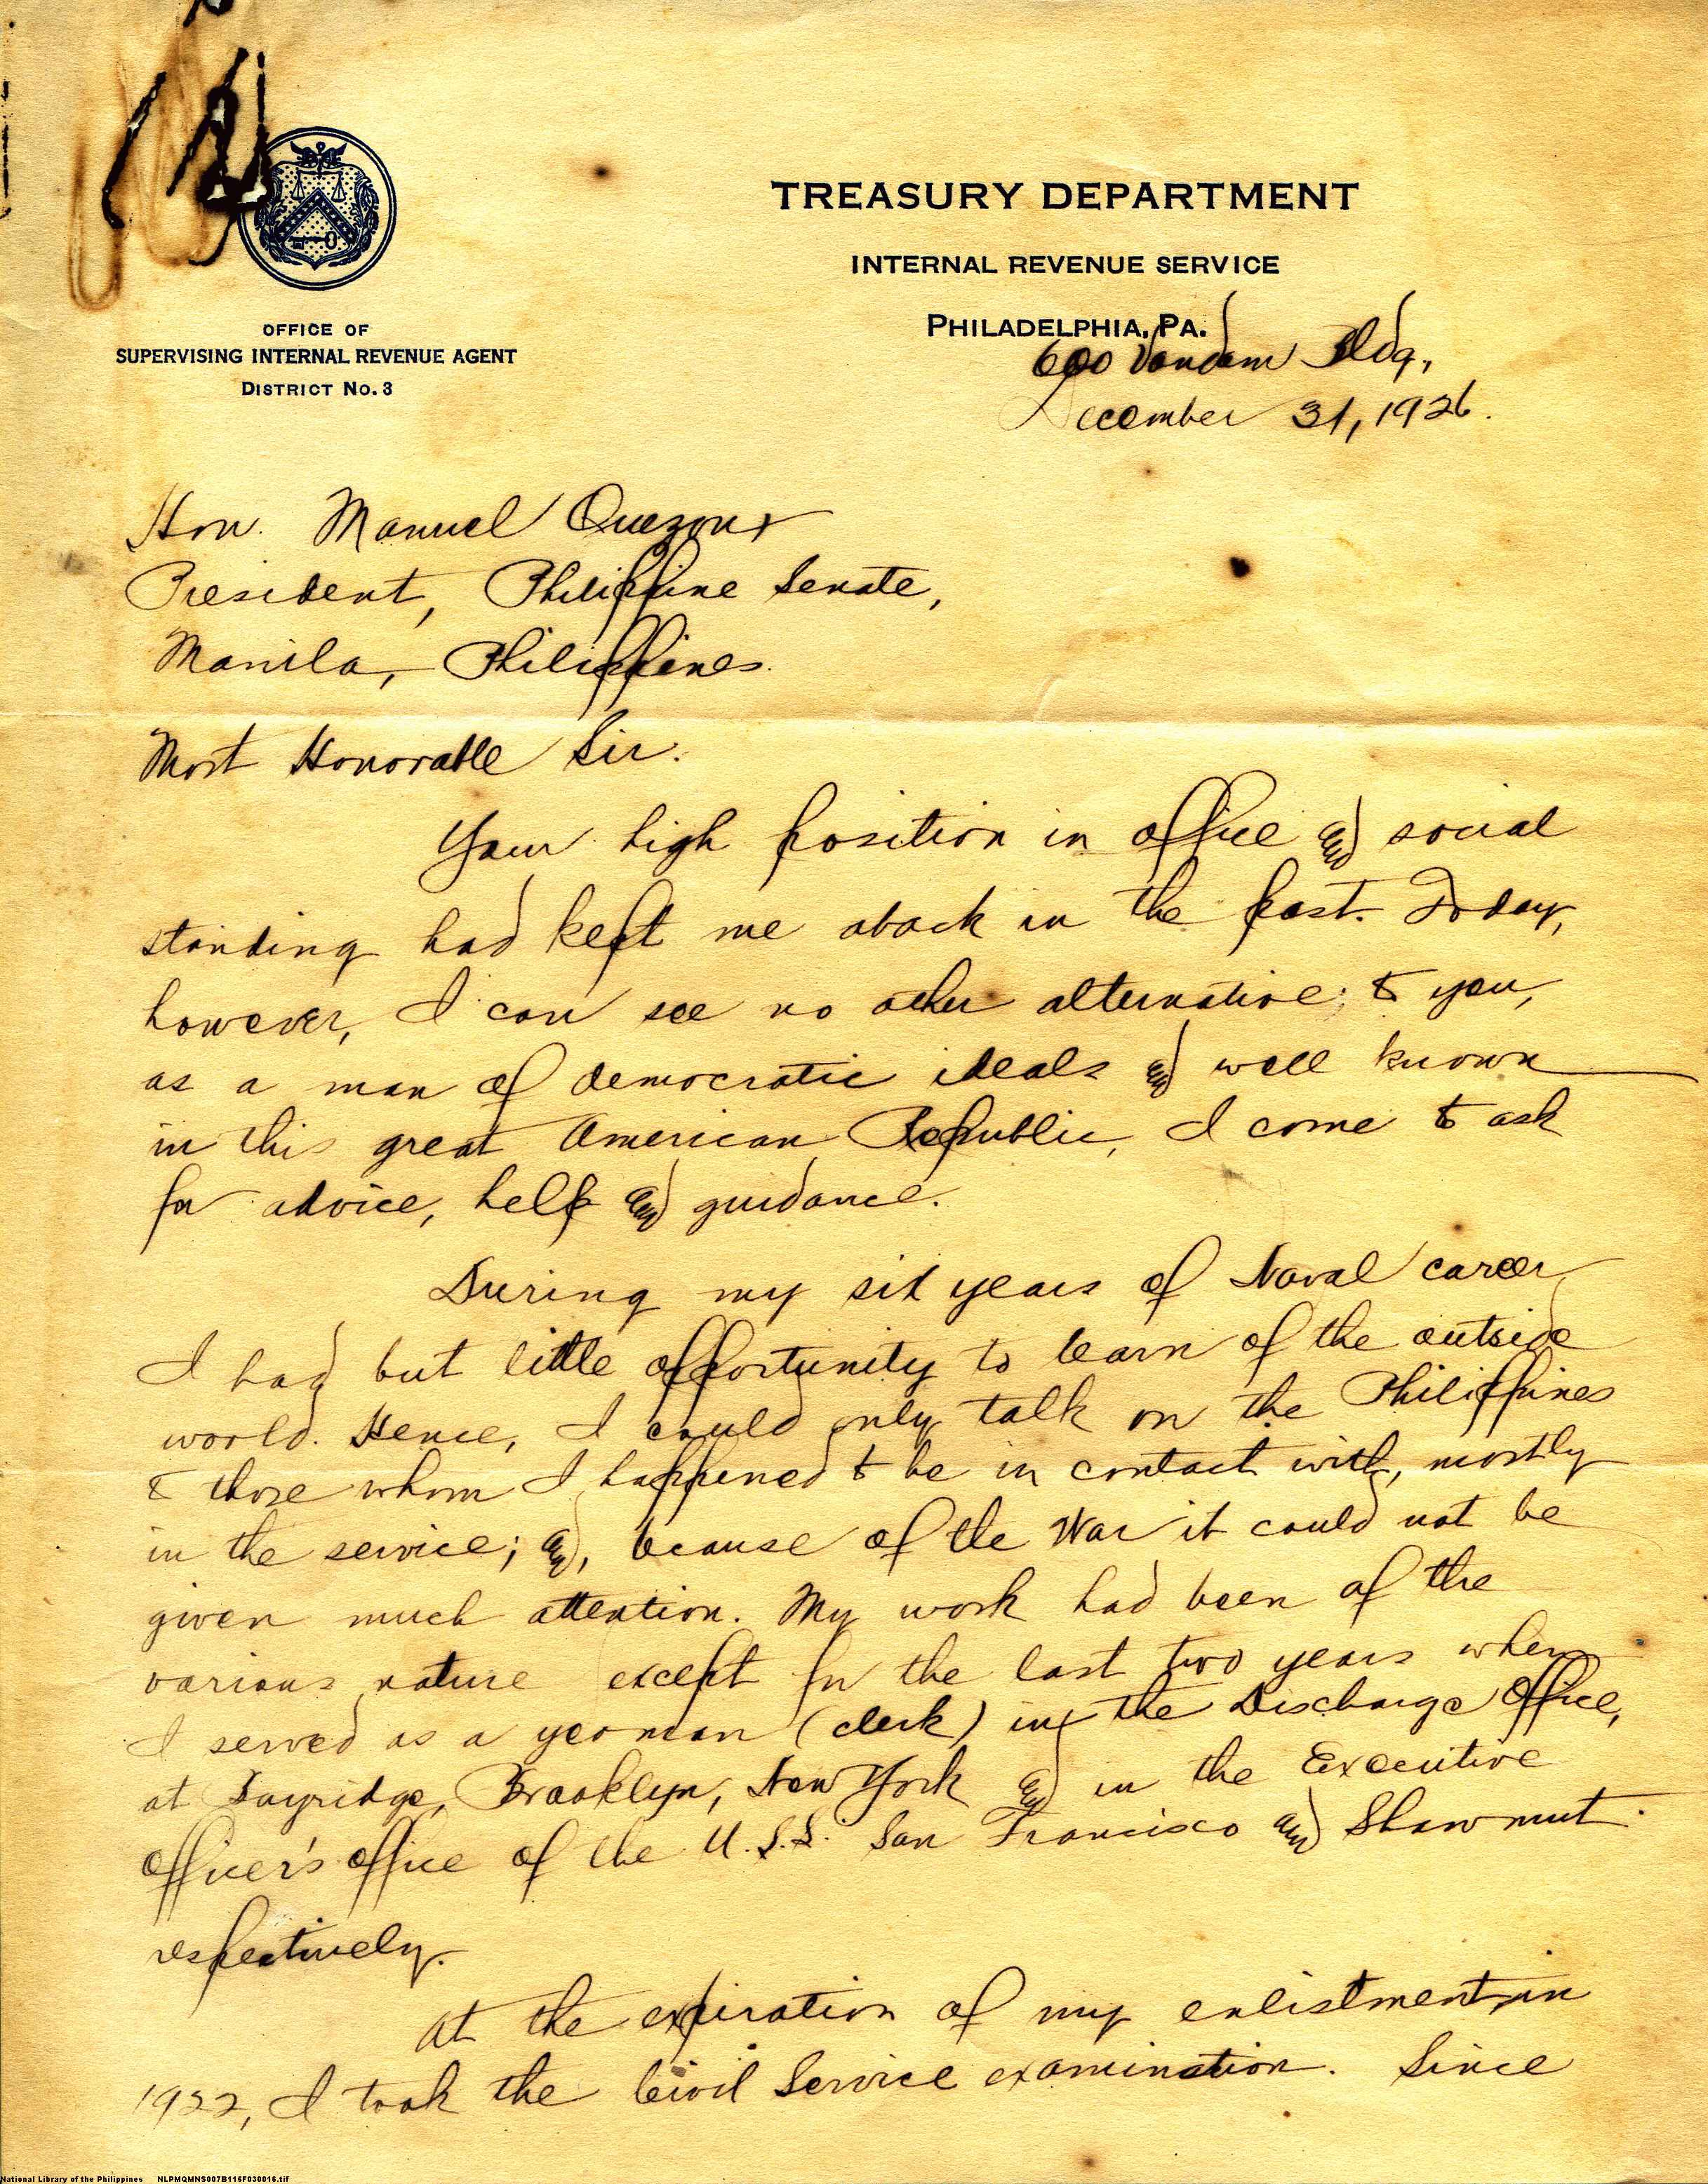 TREASURY DEPARTMENT
INTERNAL REVENUE SERVICE
PHILADELPHIA, PA.
OFFICE OF
SUPERVISING INTERNAL REVENUE AGENT
DISTRICT NO. 3
600 Vandam Bldg,
December 31, 1926.
Hon. Manuel Quezon
President, Philippine Senate,
Manila, Philippines.
Most Honorable Sir:
Your high position in office and social
standing had kept me aback in the past. Today,
however, I can see no other alternative; to you,
as a man of democratic ideals and well known
in this great American Republic, I come to ask
for advice, help and guidance.
During my six years of Naval career
I had but little opportunity to learn of the outside
world. Hence, I could only talk on the Philippines
to those whom I happened to be in contact with, mostly
in the service; and, because of the War it could not be
given much attention. My work had been of the
various nature except for the last two years when
I served as a yeoman (clerk) in the Discharge Office,
at Bayridge, Brooklyn, New York and in the Executive
Officer's office of the U.S.S. San Francisco and Shawmut
respectively.
At the expiration of my enlistment in
1922, I took the Civil Service examination. Since
National Library of the Philippines NLPMQMNS007B115F030016.tif